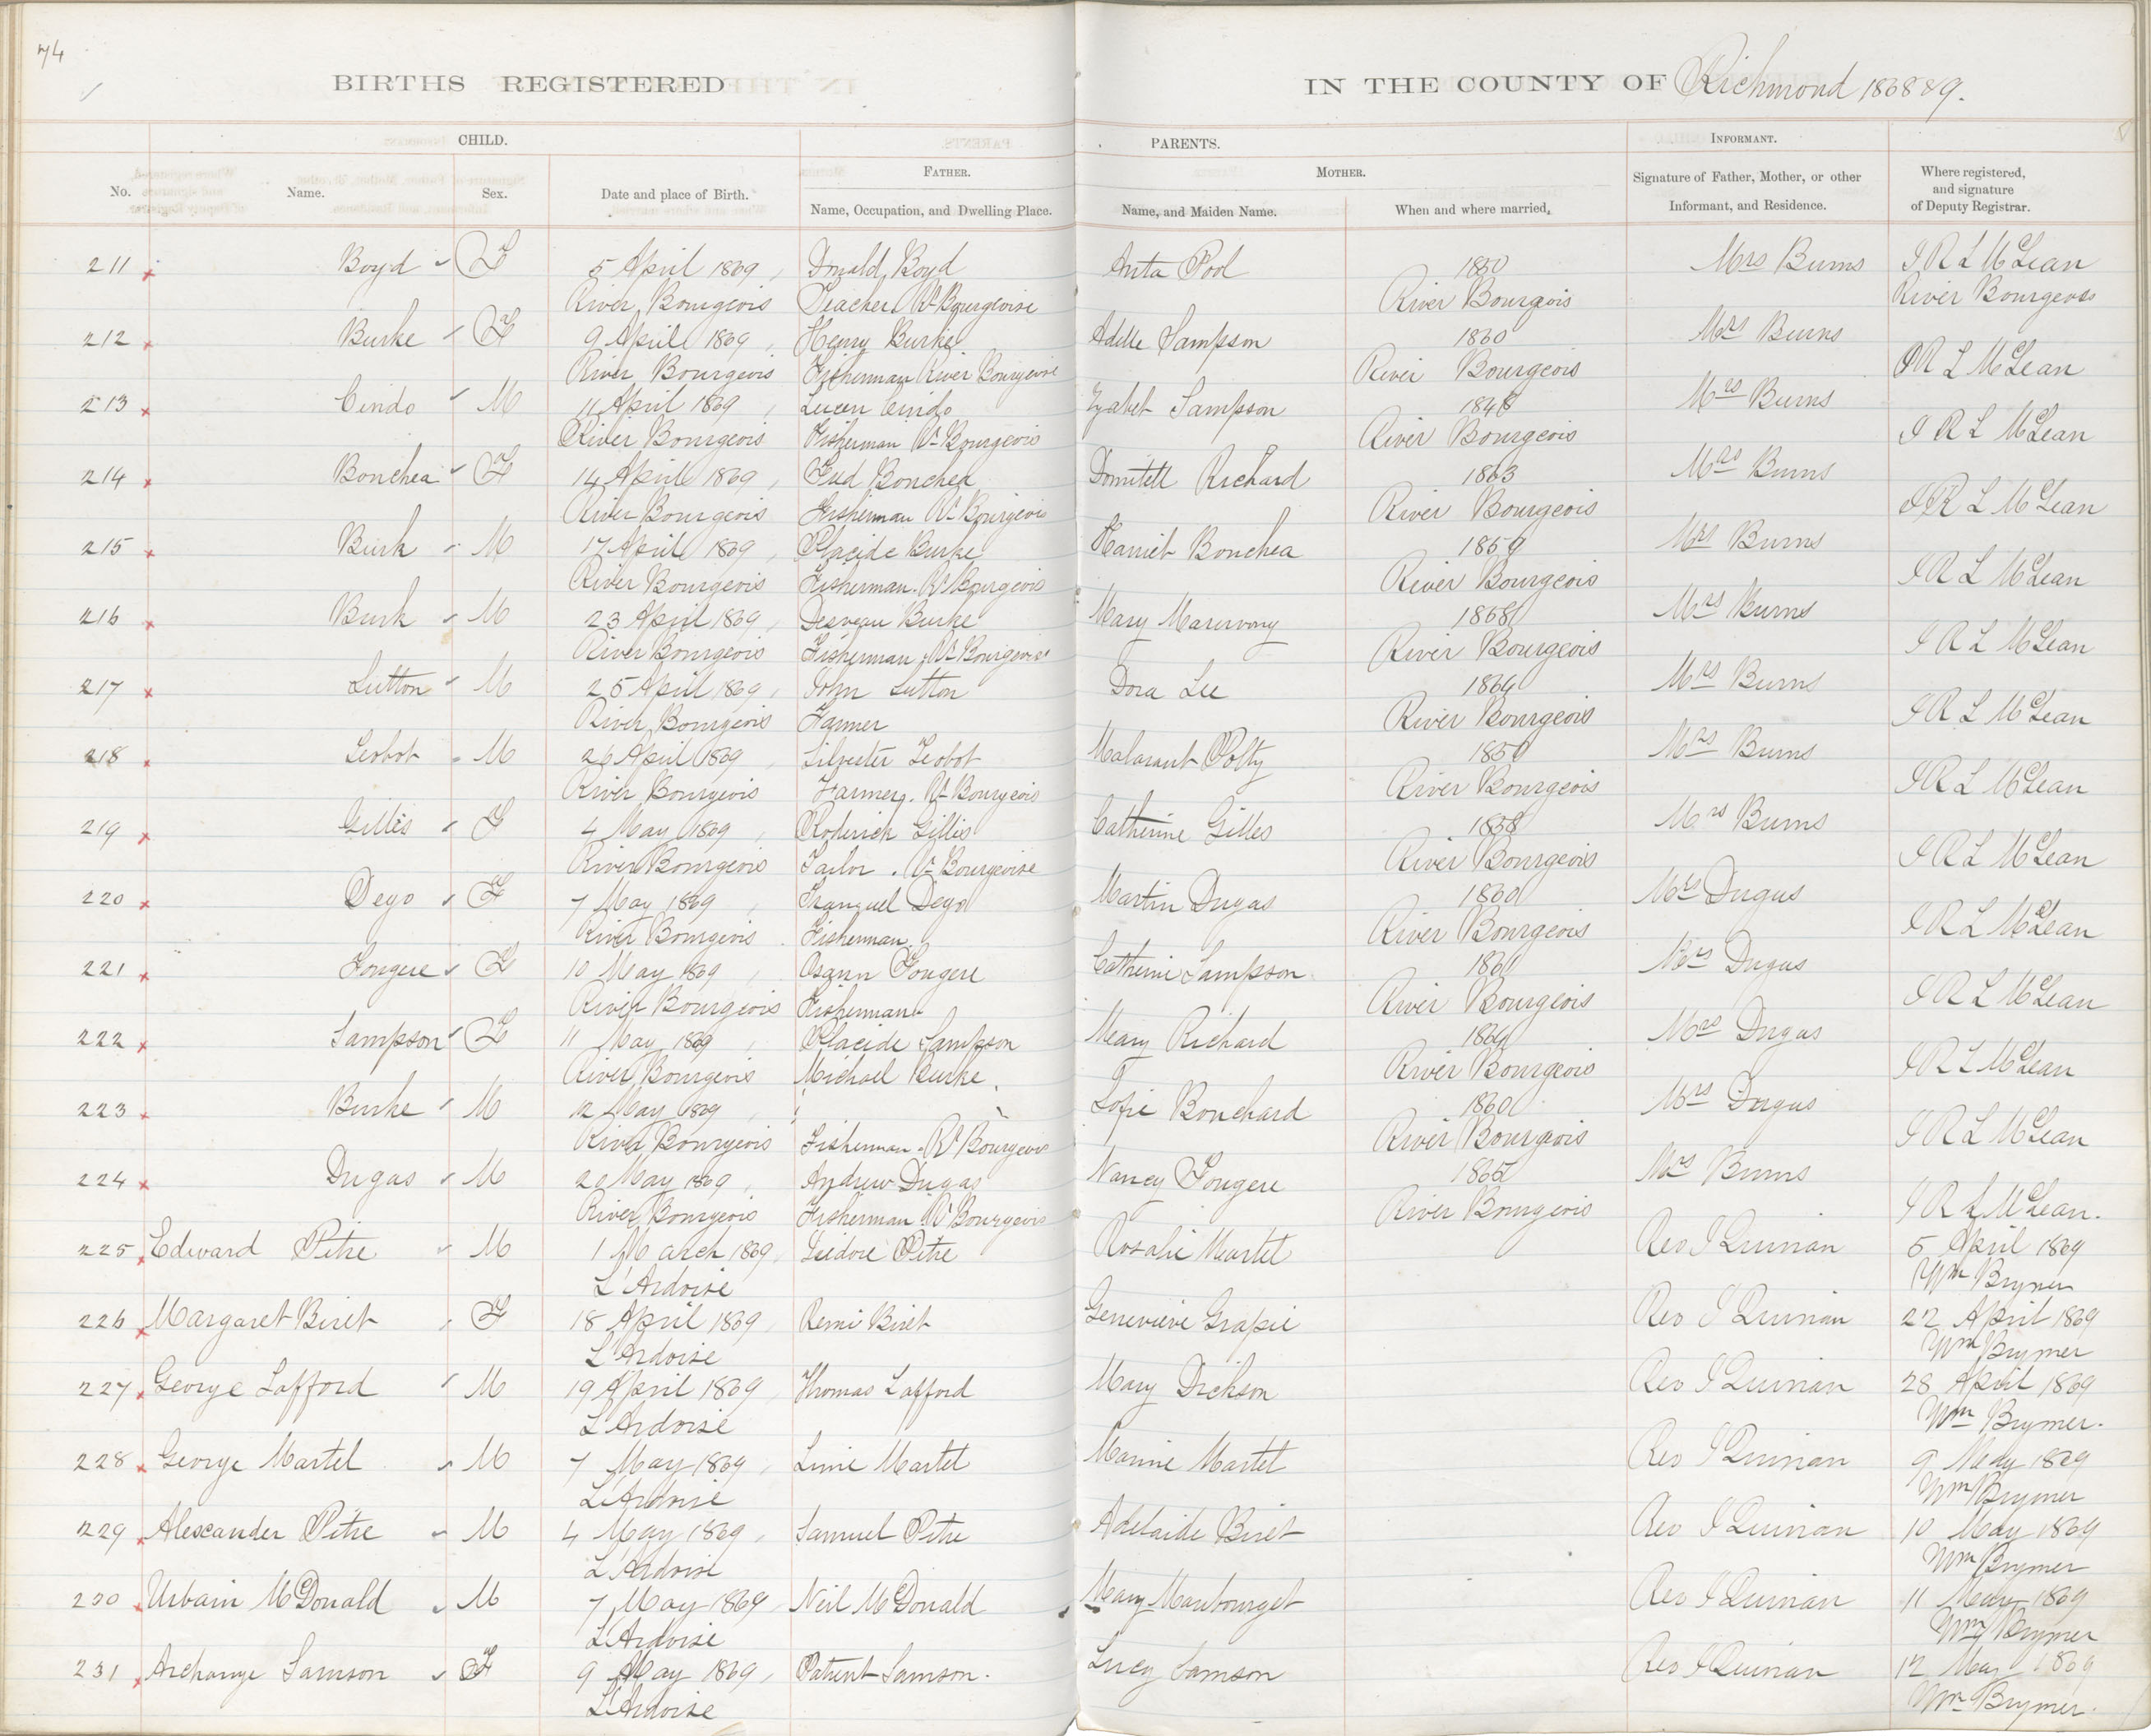 74
BIRTHS REGISTERED IN THE COUNTY OF Richmond 1868 & 9.
CHILD. PARENTS. INFORMANT.
FATHER. MOTHER.
No. Name. Sex. Date and place of Birth. Name, Occupation, and Dwelling Place. Name, and Maiden Name. When and where married. Signature of Father, Mother, or other Informant, and Residence. Where registered, and signature of Deputy Registrar.
211 Boyd F 5 April 1869 Donald Boyd Anta Pool 1860 Mrs Burns J R L McLean
River Bourgeois Teacher Rr Bourgeoise River Bourgois River Bourgeois
212 Burke F 9 April 1869 Henry Burke Adelle Sampson 1860 Mrs Burns
River Bourgeois Fisherman River Bourgeoise River Bourgeois J R L McLean
213 Cindo M 11 April 1869 Lucen Cindo Zyabet Sampson 1848 Mrs Burns
River Bourgeois Fisherman Rr Bourgeois River Bourgeois J R L McLean
214 Bonchea F 14 April 1869 Bonchea Domitell Richard 1863 Mrs Burns
River Bourgeois Fisherman Rr Bourgeois River Bourgeois J R L McLean
215 Burk M 17 April 1869 Placide Burke Harriet Bonchea 1859 Mrs Burns
River Bourgeois Fisherman. Rr Bourgeois River Bourgeois J R L McLean
216 Burk M 23 April 1869 Desveau Burke Mary 1868 Mrs Burns
River Bourgeois Fisherman Rr Bourgeoise River Bourgeois J R L McLean
217 Sutton M 25 April 1869 John Sutton Dora Lee 1864 Mrs Burns
River Bourgeois Farmer River Bourgeois J R L McLean
218 Leobot M 26 April 1869 Silvester Leobot Malarant Potty 1850 Mrs Burns
River Bourgeois Farmer. Rr Bourgeois River Bourgeois J R L McLean
219 Gillis F 4 May 1869 Roderick Gillis Catherine Gilles 1858 Mrs Burns
River Bourgeois Tailor. Rr Bourgeoise River Bourgeois J R L McLean
220 Dego F 7 May 1869 Tranquel Dego Martin Dugas 1860 Mrs Dugus
River Bourgeois Fisherman. River Bourgeois J R L McLean
221 Fougere F 10 May 1869 Fougere Catherine Sampson 1860 Mrs Dugus
River Bourgeois Fisherman River Bourgeois J R L McLean
222 Sampson F 11 May 1869 Placide Sampson Mary Richard 1864 Mrs Dugas
River Bourgeois Michael Burke River Bourgeois J R L McLean
223 Burke M 12 May 1869 Sofie Bouchard 1860 Mrs Dugus
River Bourgeois Fisherman. Rr Bourgeois River Bourgois J R L McLean
224 Dugas M 20 May 1869 Andrew Dugas Nancy Fougere 1862 Mrs Burns
River Bourgeois Fisherman Rr Bourgeois River Bourgeois J R L McLean.
225 Edward Pitre M 1 March 1869 Isidore Pitre Rosalie Martel Rev J Quinan 5 April 1869
L'Ardoise Wm Brymer
226 Margaret Biret F 18 April 1869 Remi Biret Genevieve Grapie Rev J Quinan 22 April 1869
L'Ardoise Wm Brymer
227 George Lafford M 19 April 1869 Thomas Lafford Mary Dickson Rev J Quinan 28 April 1869
L'Ardoise Wm Brymer.
228 George Martel M 7 May 1869 Limi Martel Marine Martel Rev J Quinan 9 May 1869
L'Ardoise Wm Brymer
229 Alexcander Pitre M 4 May 1869 Samuel Pitre Adelaide Biret Rev J Quinan 10 May 1869
L'Ardoise Wm Brymer
230 Urbain McDonald M 7 May 1869 Neil McDonald Mary Manbourget Rev J Quinan 11 May 1869
L'Ardoise Wm Brymer
231 Archange Samson F 9 May 1869 Patient Samson. Lucy Samson Rev J Quinan 12 May 1869
L'Ardoise Wm Brymer.